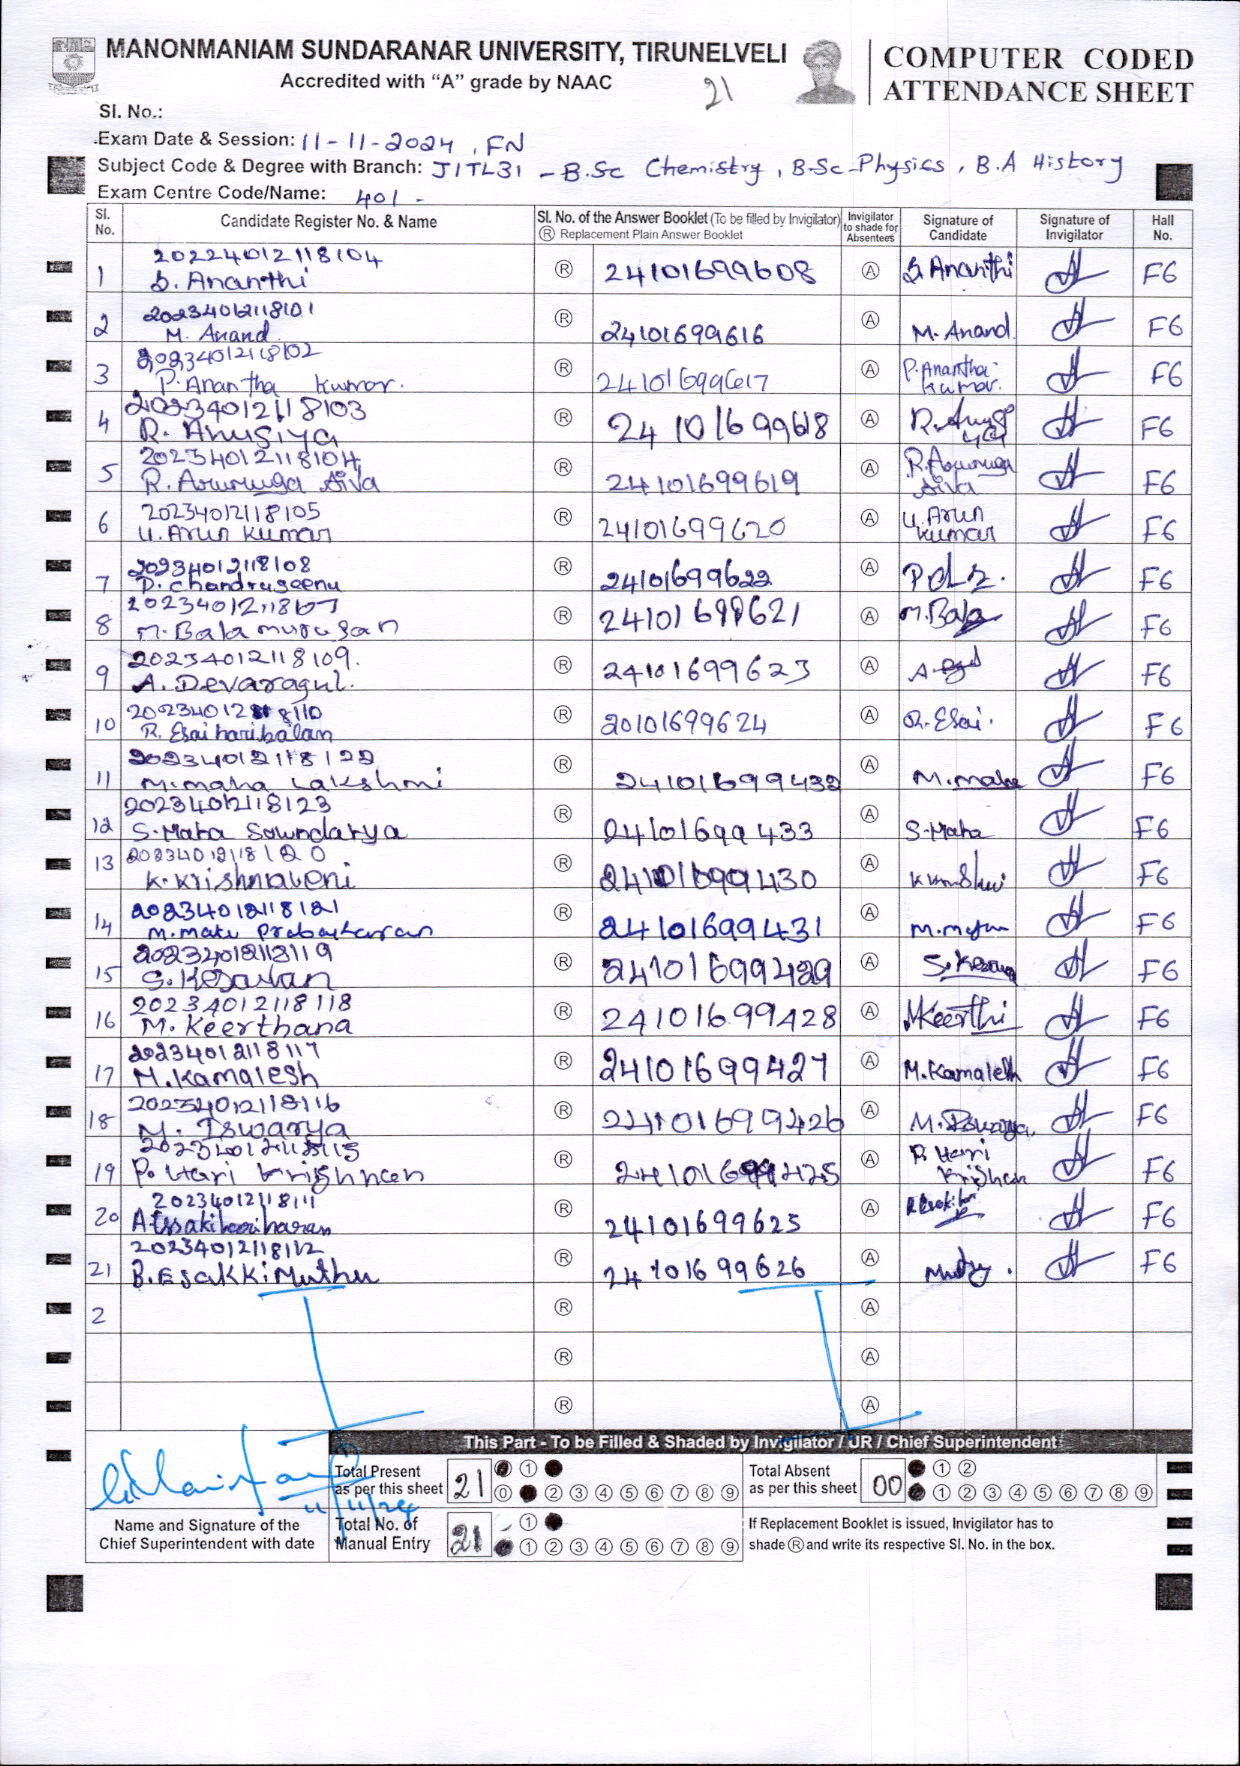 MANONMANIAM SUNDARANAR UNIVERSITY, TIRUNELVELI
Accredited with "A" grade by NAAC
21
COMPUTER CODED
ATTENDANCE SHEET
Sl. No.:
Exam Date & Session: 11-11-2024, FN
Subject Code & Degree with Branch: JITL31 - B.Sc Chemistry, B.Sc-Physics, B.A History
Exam Centre Code/Name: 401 -
Sl. No. Candidate Register No. & Name Sl. No. of the Answer Booklet (To be filled by Invigilator) Ⓡ Replacement Plain Answer Booklet Invigilator to shade for Absentees Signature of Candidate Signature of Invigilator Hall No.
20224012118104
1 S. Ananthi Ⓡ 24101699608 Ⓐ S. Ananthi F6
20234012118101
2 M. Anand Ⓡ 24101699616 Ⓐ M. Anand. F6
20234012118102
3 P. Anantha Kumar. Ⓡ 24101699617 Ⓐ P. Anantha Kumar. F6
20234012118103
4 R. Anusiya Ⓡ 24101699618 Ⓐ F6
20234012118104
5 R. Arumuga Siva Ⓡ 24101699619 Ⓐ R. Arumuga Siva F6
20234012118105
6 U. Arun Kumar Ⓡ 24101699620 Ⓐ U. Arun Kumar F6
20234012118108
7 P. Chandruseenu Ⓡ 24101699622 Ⓐ F6
20234012118107
8 M. Bala murugan Ⓡ 24101699621 Ⓐ M. Bala F6
20234012118109.
9 A. Devaragul. Ⓡ 24101699623 Ⓐ F6
20234012118110
10 R. Esai haribalan Ⓡ 20101699624 Ⓐ R. Esai. F6
20234012118122
11 M. maha Lakshmi Ⓡ 24101699432 Ⓐ M. maha F6
20234012118123
12 S. Maha Soundarya Ⓡ 24101699433 Ⓐ S. Maha F6
20234012118120
13 K. Krishnaveni Ⓡ 24101699430 Ⓐ F6
20234012118121
14 M. Matu Prabaharan Ⓡ 24101699431 Ⓐ F6
20234012118119
15 S. Kesavan Ⓡ 24101699429 Ⓐ S. Kesava F6
20234012118118
16 M. Keerthana Ⓡ 24101699428 Ⓐ M Keerthi F6
20234012118117
17 M. Kamalesh Ⓡ 24101699427 Ⓐ M. Kamalesh F6
20234012118116
18 M. Iswarya Ⓡ 24101699426 Ⓐ M. Iswarya F6
20234012118115
19 P. Hari Krishnan Ⓡ 24101699425 Ⓐ P. Hari Krishnan F6
20234012118111
20 A. Essakki hariharan Ⓡ 24101699625 Ⓐ F6
20234012118112
21 B. Esakki Muthu Ⓡ 24101699626 Ⓐ F6
2 Ⓡ Ⓐ
Ⓡ Ⓐ
Ⓡ Ⓐ
This Part - To be Filled & Shaded by Invigilator / JR / Chief Superintendent
Total Present as per this sheet 21 ① ⓪ ② ③ ④ ⑤ ⑥ ⑦ ⑧ ⑨
Total Absent as per this sheet 00 ① ② ① ② ③ ④ ⑤ ⑥ ⑦ ⑧ ⑨
11/11/24
Name and Signature of the Chief Superintendent with date
Total No. of Manual Entry 21 ① ① ② ③ ④ ⑤ ⑥ ⑦ ⑧ ⑨
If Replacement Booklet is issued, Invigilator has to
shade Ⓡ and write its respective Sl. No. in the box.